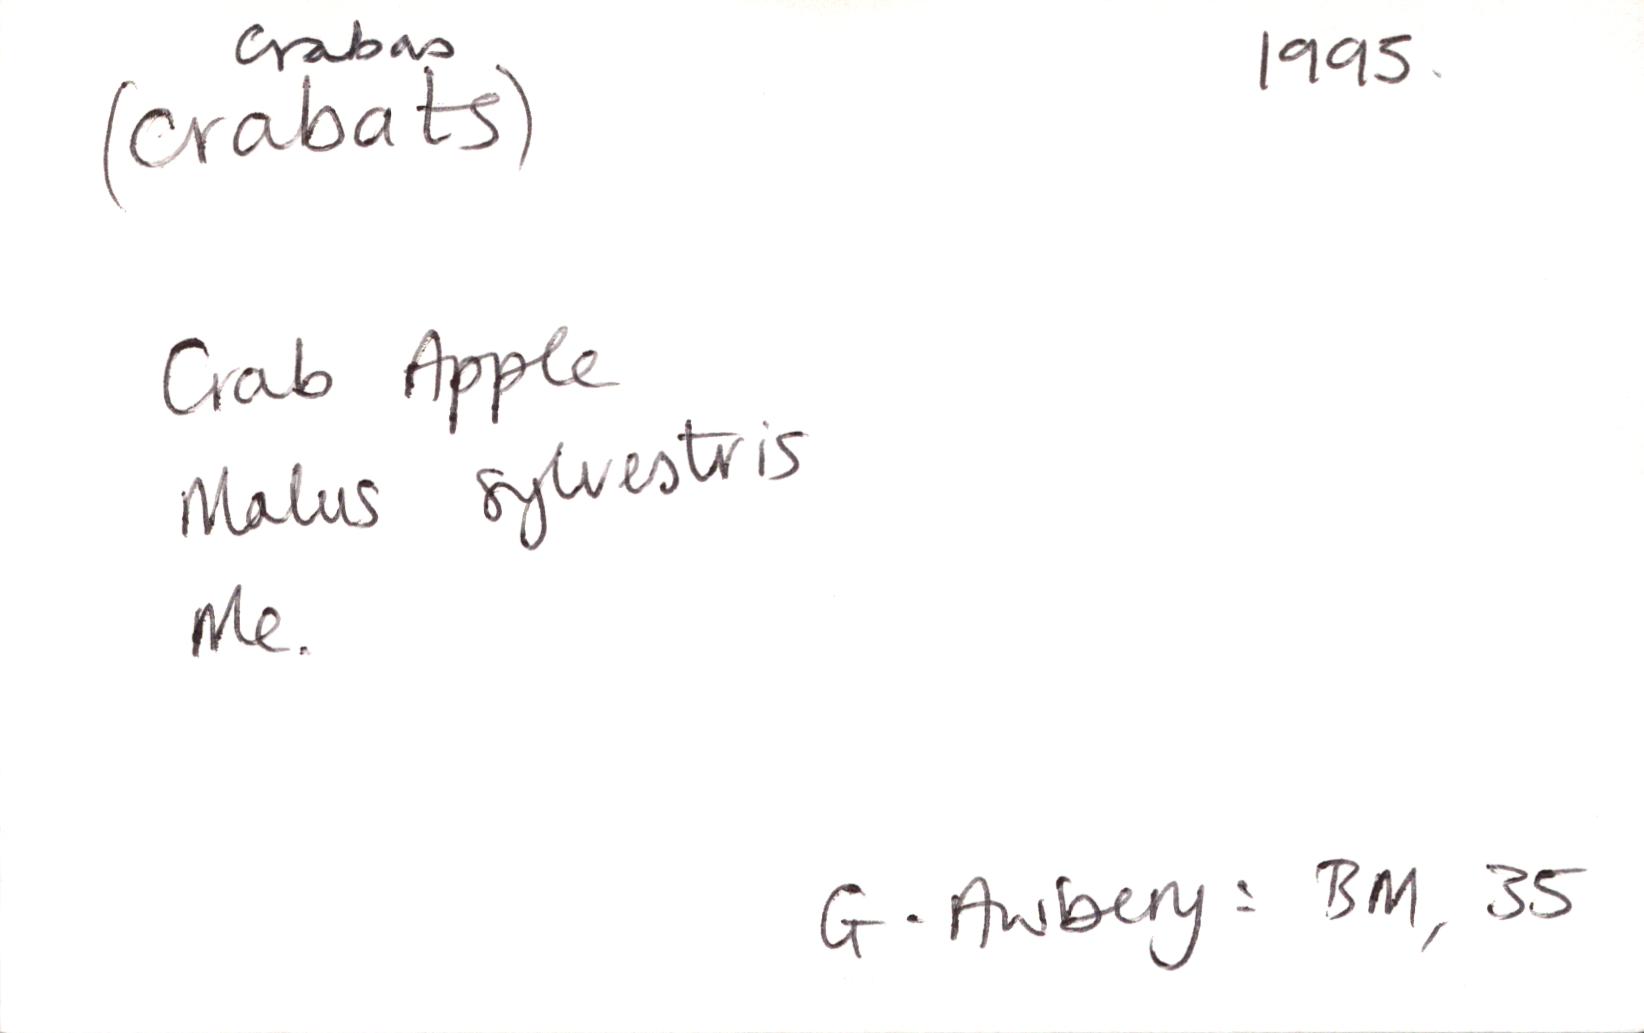 crabas
(crabats)
1995.
Crab Apple
Malus sylvestris
Me.
G. Awbery: BM, 35